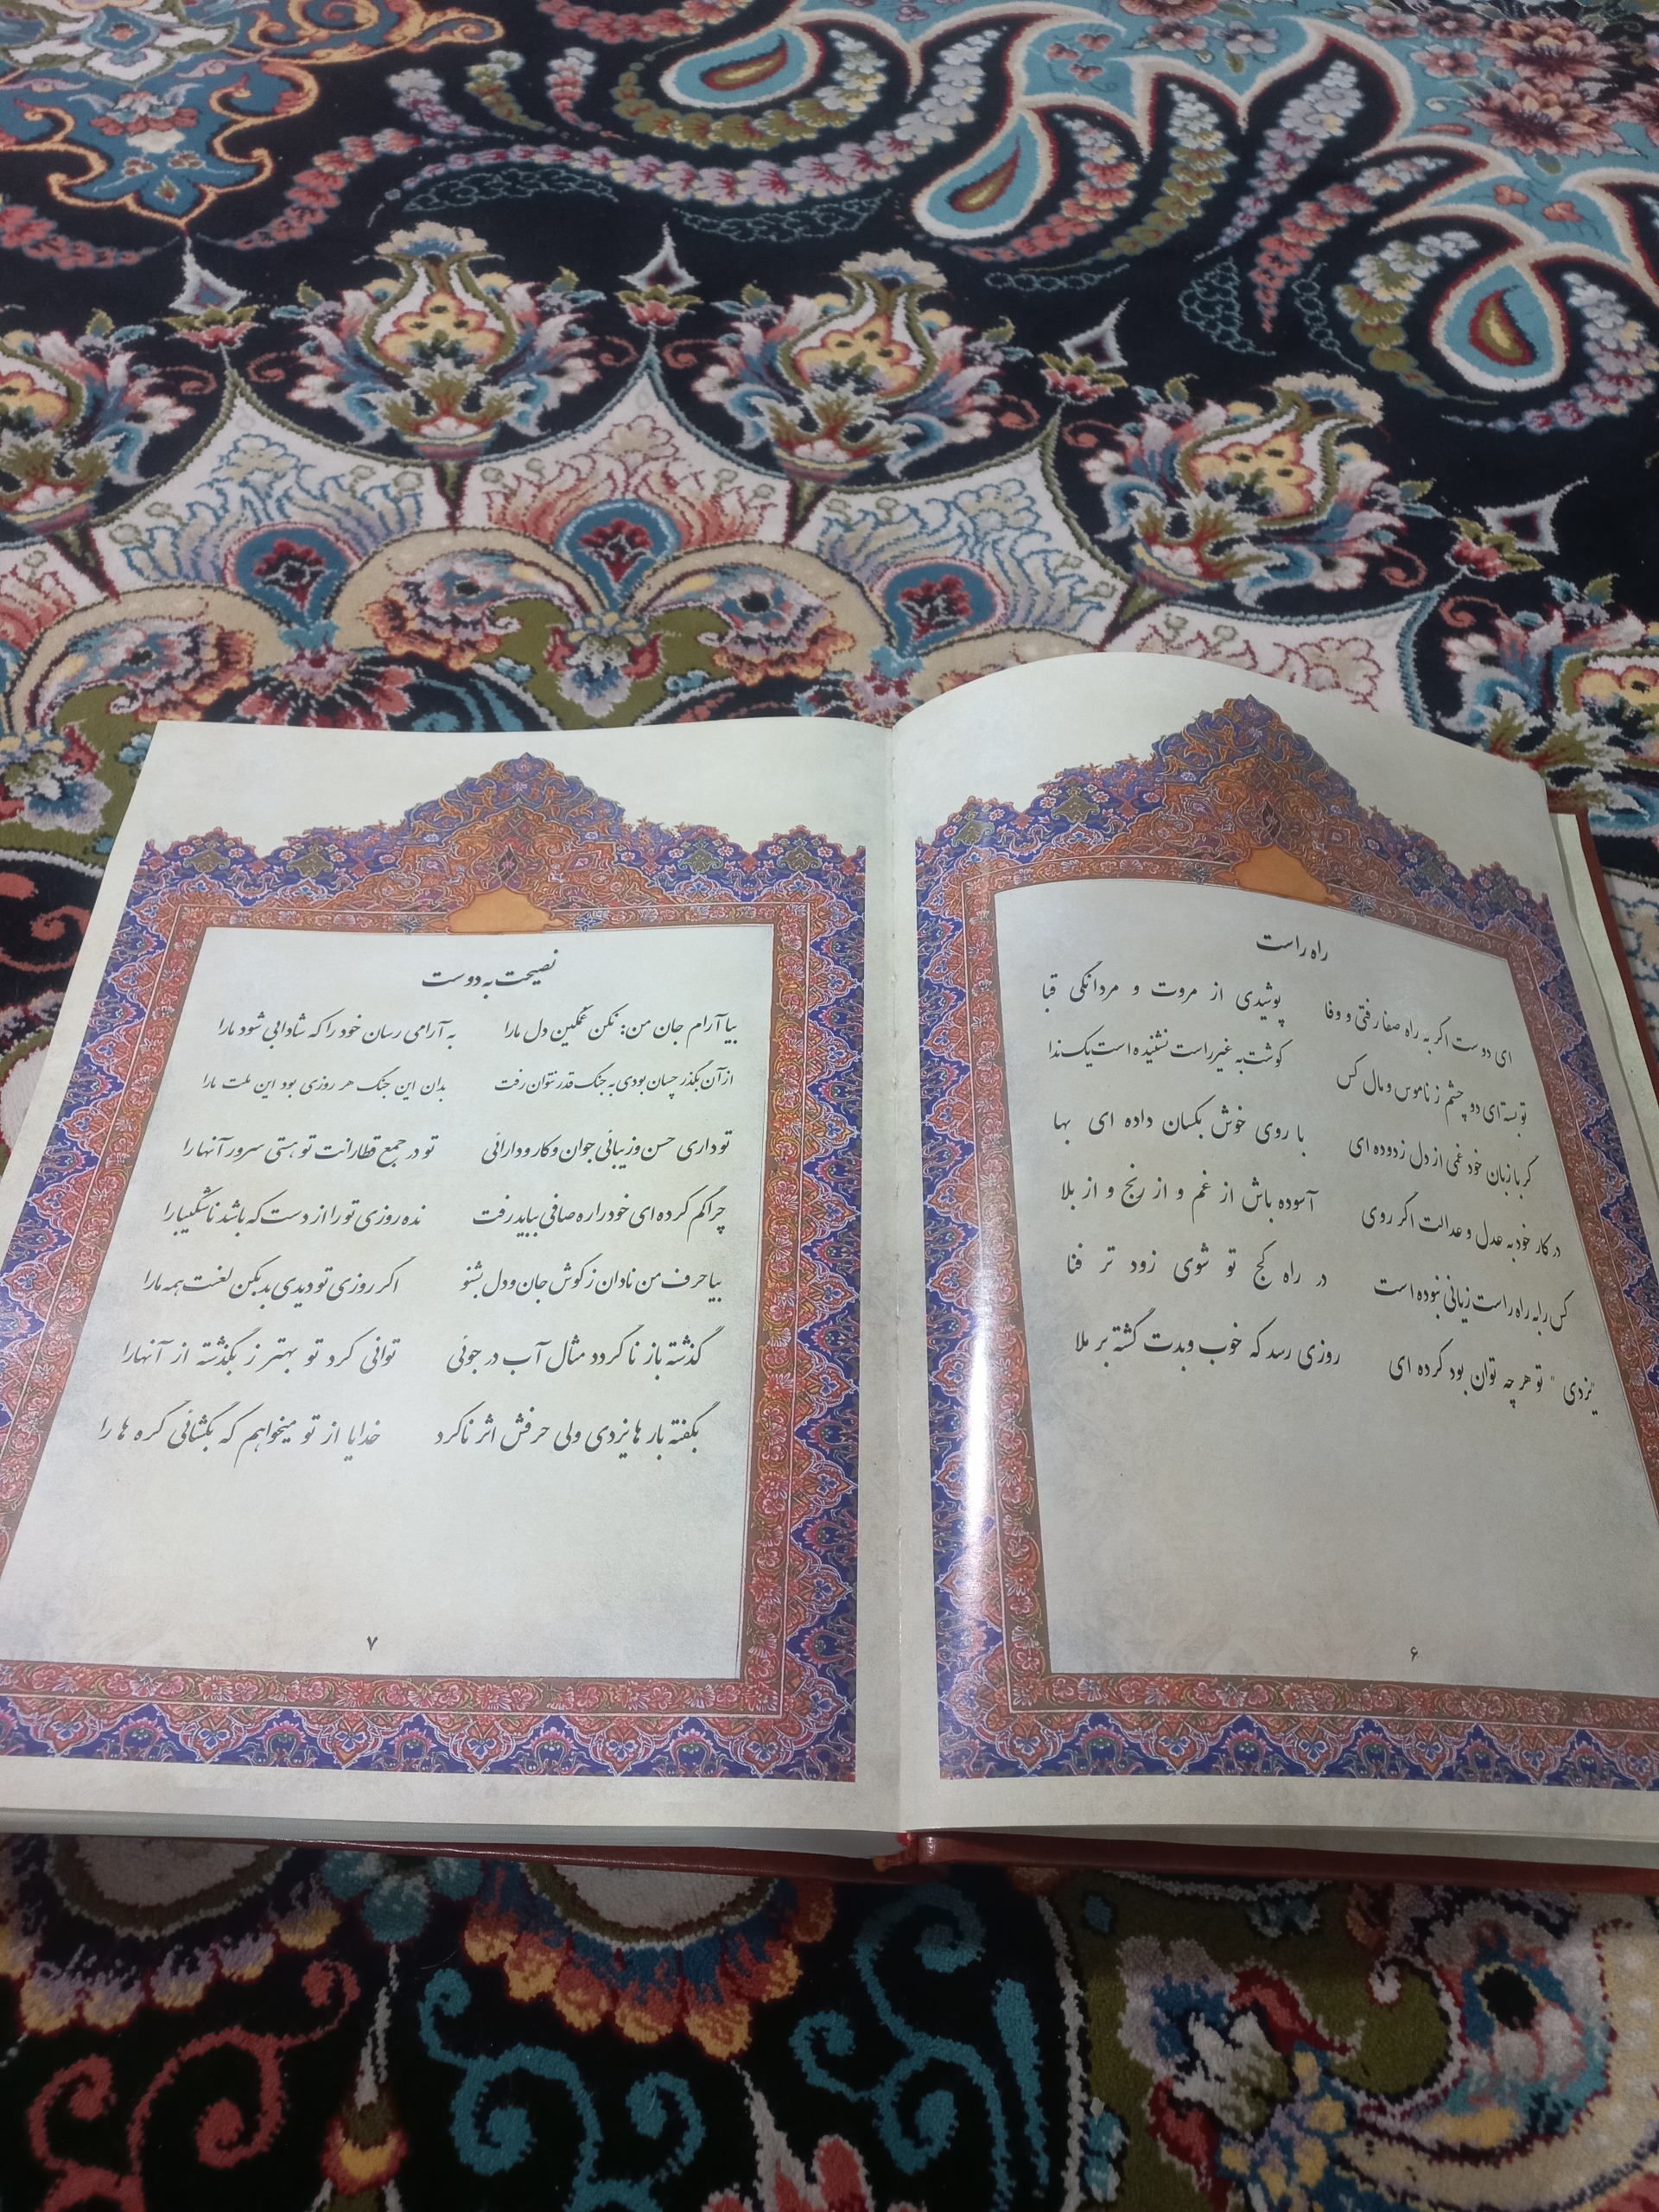 راه راست
ای دوست اگر به راه صفا رفتی و وفا پوشیدی از مروت و مردانگی قبا
تو بسته‌ای دو چشم ز ناموس و مال کس گوشت به غیر راست نشنیده است یک ندا
گر با زبان خود غمی از دل زدوده ای با روی خوش بکسان داده ای بها
در کار خود به عدل و عدالت اگر روی آسوده باش از غم و از رنج و از بلا
کس را به راه راست زیانی نبوده است در راه کج تو شوی زود تر فنا
"یزدی" تو هر چه توان بود کرده ای روزی رسد که خوب و بدت گشته بر ملا
۶
نصیحت به دوست
بیا آرام جان من: نکن غمگین دل مارا به آرامی رسان خود را که شادابی شود مارا
از آن بگذر چسان بودی به جنگ قدر نتوان رفت بدان این جنگ هر روزی بود این ملت مارا
تو داری حسن و زیبائی جوان و کار و دارائی تو در جمع قطارانت تو هستی سرور آنها را
چرا گم کرده ای خود را ره صافی بباید رفت نده روزی تو را از دست که باشد ناشکیبا را
بیا حرف من نادان ز گوش جان و دل بشنو اگر روزی تو دیدی بد بکن لغنت همه مارا
گذشته باز نا گردد مثال آب در جوئی توانی کرد تو بهتر ز بگذشته از آنهارا
بگفته بار ها یزدی ولی حرفش اثر ناکرد خدایا از تو میخواهم که بگشائی گره ها را
۷